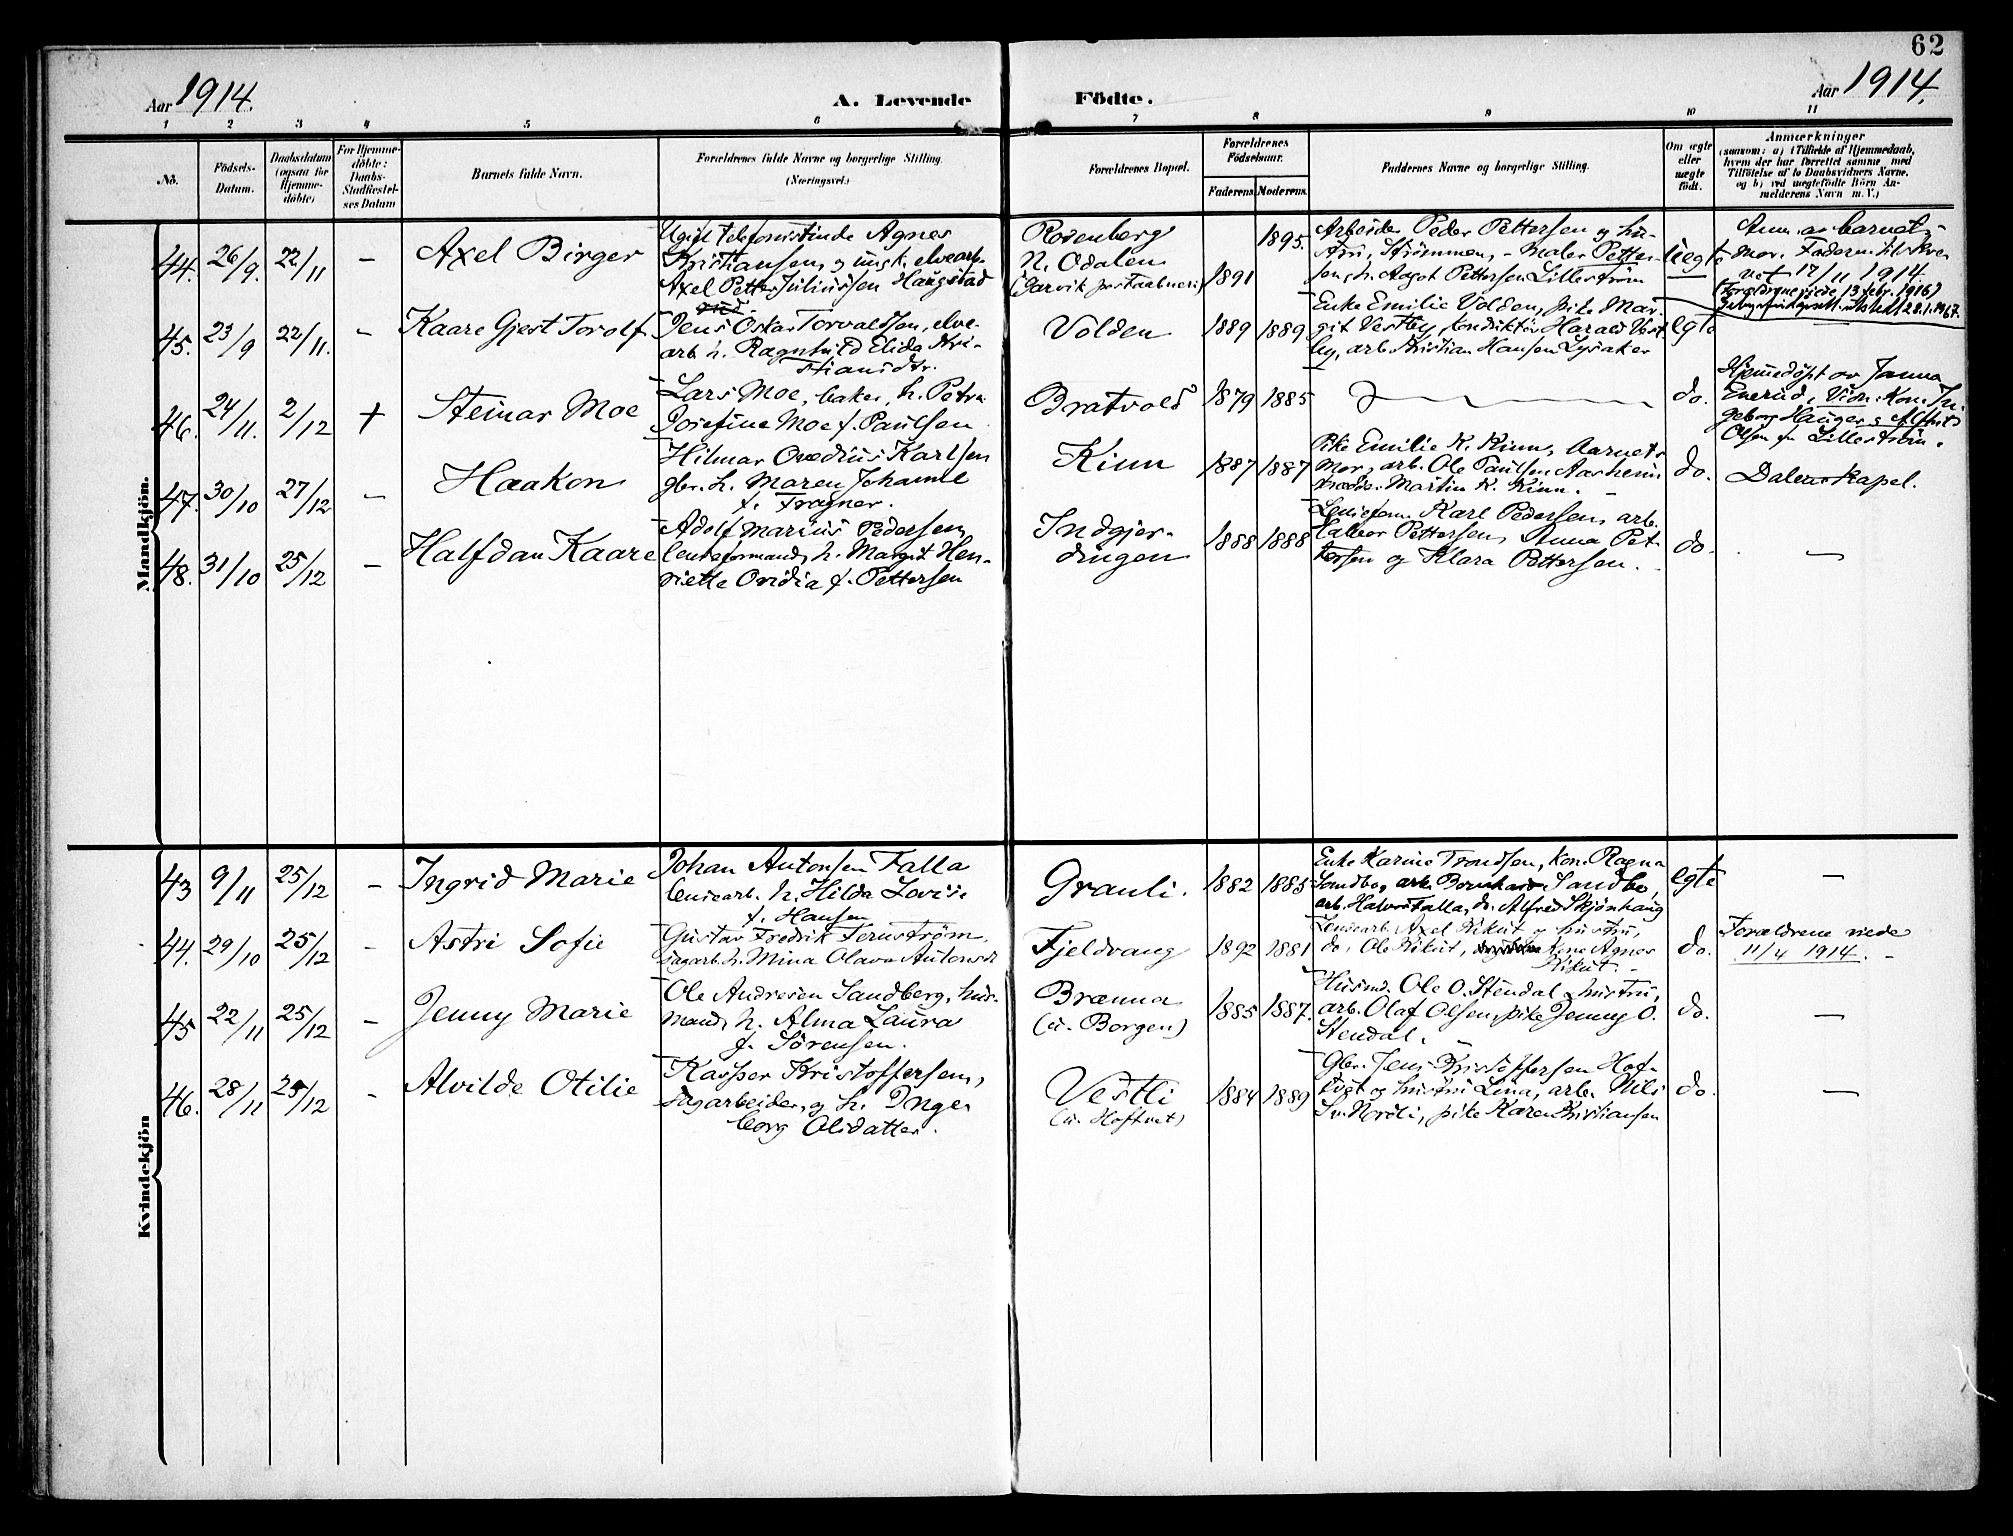 62
Aar 1914.
A. Levende Födte.
Aar 1914.
1 2 3 4 5 6 7 8 9 10 11
No.
Födsels-
Datum.
Daabsdatum
(ogsaa for
Hjemme-
döbte)
For Hjemme-
döbte:
Daabs-
Stadfæstel-
ses Datum
Barnets fulde Navn.
Forældrenes fulde Navne og borgerlige Stilling.
(Næringsvei.)
Forældrenes Bopæl.
Forældrenes
Födselsaar.
Faderens. Moderens.
Faddernes Navne og borgerlige Stilling.
Om ægte
eller
uægte
födt.
Anmærkninger
(saasom: a) i Tilfælde af Hjemmedaab,
hvem der har forrettet samme, med
Tilföielse af to Daabsvidners Navne,
og b) ved uægtefödte Börn An-
melderens Navn m. V.)
Mandkjön.
44. 26/9. 22/11 – Axel Birger
Ugift telefonistinde Agnes
Kristiansen, og ungk. elvearb.
Axel Petter Juliussen Haugstad
Rosenberg
N. Odalen
1891 1895.
Arbeider Peder Pettersen og hu-
stru, Strømmen, – maler Petter-
sen, h. Aagot Pettersen Lillestrøm
uegte
Anm. av barnets
mor. Faderen tilskre-
vet 17/11 1914
(Forældrene viede 13 febr. 1916)
45. 23/9 22/11. – Kaare Gjert Torolf
Jens Oskar Torvaldsen, elve-
arb. h. Ragnhild Elida Kri-
stiansdtr.
Volden
1889 1889
Enke Emilie Volden, pike Mar-
git Vestby, konduktør Harald Vest-
by, arb. Kristian Hansen Lysaker
egte
46. 24/11. 2/12 + Steinar Moe
Lars Moe, baker, h. Petra
Josefine Moe f. Paulsen
Bratvold
1879 1885
do.
Hjemmedøpt av Janna
Enerud, Vidn. Kone In-
geborg Hauger og
Olsen fr. Lillestrøm.
47. 30/10 27/12 – Haakon
Hilmar Ovedius Karlsen
gbr. h. Maren Johanne
f. Fragner.
Kinn
1887 1887
Pike Emilie K. Kinn, Barnets
Mor, arb. Ole Paulsen Aasheim
Martin K. Kinn. –
do.
Dalens kapel.
48. 31/10 25/12 – Halfdan Kaare
Adolf Marius Pedersen,
lenseformand, h. Margit Hen-
riette Ovidia f. Pettersen
Indgjer-
dingen
1888 1888
Lenseform. Karl Pedersen, arb.
Halvor Pettersen, Anna Pet-
tersen og Klara Pettersen.
do. –
Kvindekjön
43 9/11 25/12 – Ingrid Marie
Johan Antonsen Falla
lensearb. h. Hilda Lovise
f. Hansen
Grauli.
1882 1885
Enke Karine Trondsen, Kone Ragna
Sandbo, arb. Bernhard Sandbo,
arb. Halvor Falla, do. Alfred Skjønhaug
egte –
44. 29/10 25/12 – Astri Sofie
Gustav Fredrik Fernström,
sagarb. h. Mina Olava Antonsdt
Fjeldvang
1892 1881
Lensearb. Axel Rikut og hustru,
do. Ole Rikut, Kone Agnes
Rikut. –
do.
Forældrene viede
11/4 1914. –
45 22/11 25/12 – Jenny Marie
Ole Andresen Sandberg, hus-
mand, h. Alma Laura
f. Sörensen.
Brænna
(u. Borgen)
1885 1887.
Husmd. Ole O. Stendal hustru,
arb. Olaf Olsen, pike Jenny O.
Stendal.
do. –
46. 28/11 25/12 – Alvilde Otilie
Kasper Kristoffersen,
Sagarbeider, og h. Inge-
borg Olsdatter.
Vestli
(u. Hoftvet)
1884 1889
Gbr. Jens Kristoffersen Hof-
tvet og hustru Lina, arb. Nils
Nordli, pike Karen Kristiansen
do. –